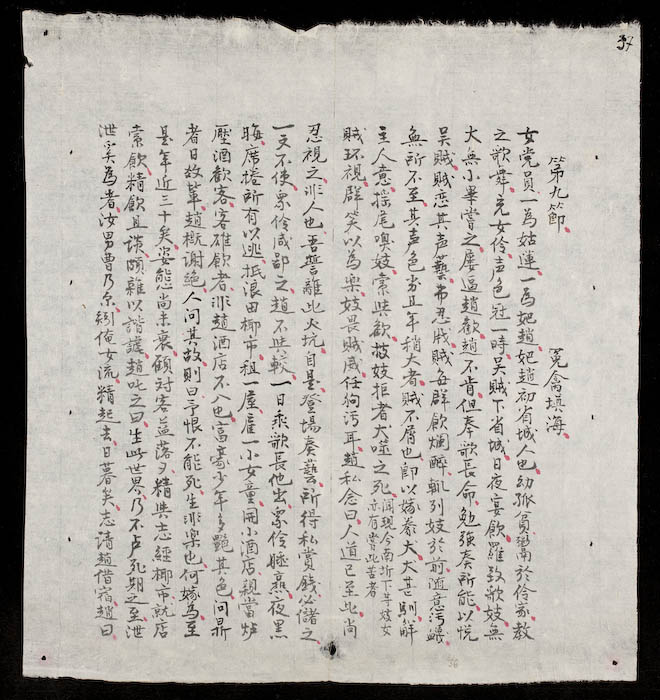 37
第九節 冤禽填海
女党員一為姑蓮一為妑趙妑趙初省城人也幼孤貧鬻於伶家教
之歌舞充女伶声色冠一時吳賊下省城日夜宴飲羅致歌妓無
大無小畢嘗之屢逼趙歡趙不肯但奉歌長命勉强奏所能以悦
吳賊賊恋其声藝弗忍戕賊每群飲爛醉輒列妓於前随意污衊
無所不至其声色劣且年稍大者賊不屑也即以嫁犬犬甚馴解
主人意摇尾嗅妓索與歓妓拒者犬噬之死聞現今南圻下等妓女
亦有嘗此苦者
賊环視群笑以為樂妓畏賊威任狗污耳趙私念曰人道已至此尚
忍視之非人也吾誓離此火坑自是登場奏藝所得私賞錢必儲之
一文不使眾伶咸鄙之趙不較一日乘歌長他出眾伶睡熟夜黑
晦席捲所有以逃抵浪田椰市租一廛雇一小女童開小酒店親當炉
壓酒歡客客雖飲者非趙酒店不入也富豪少年多艶其色問鼎
者日故輩趙概謝絶人問其故則曰予恨不能死生非樂也何嫁為至
是年近三十矣姿態尚未衰顧対客益落夕精與志經椰市就店
索飲精飲且談頗雜以諧謔趙叱之曰生此世界乃不卢死期之至泄
泄奚為者汝男曹乃尔俺女流精起去日暮矣志請趙借宿趙曰
36